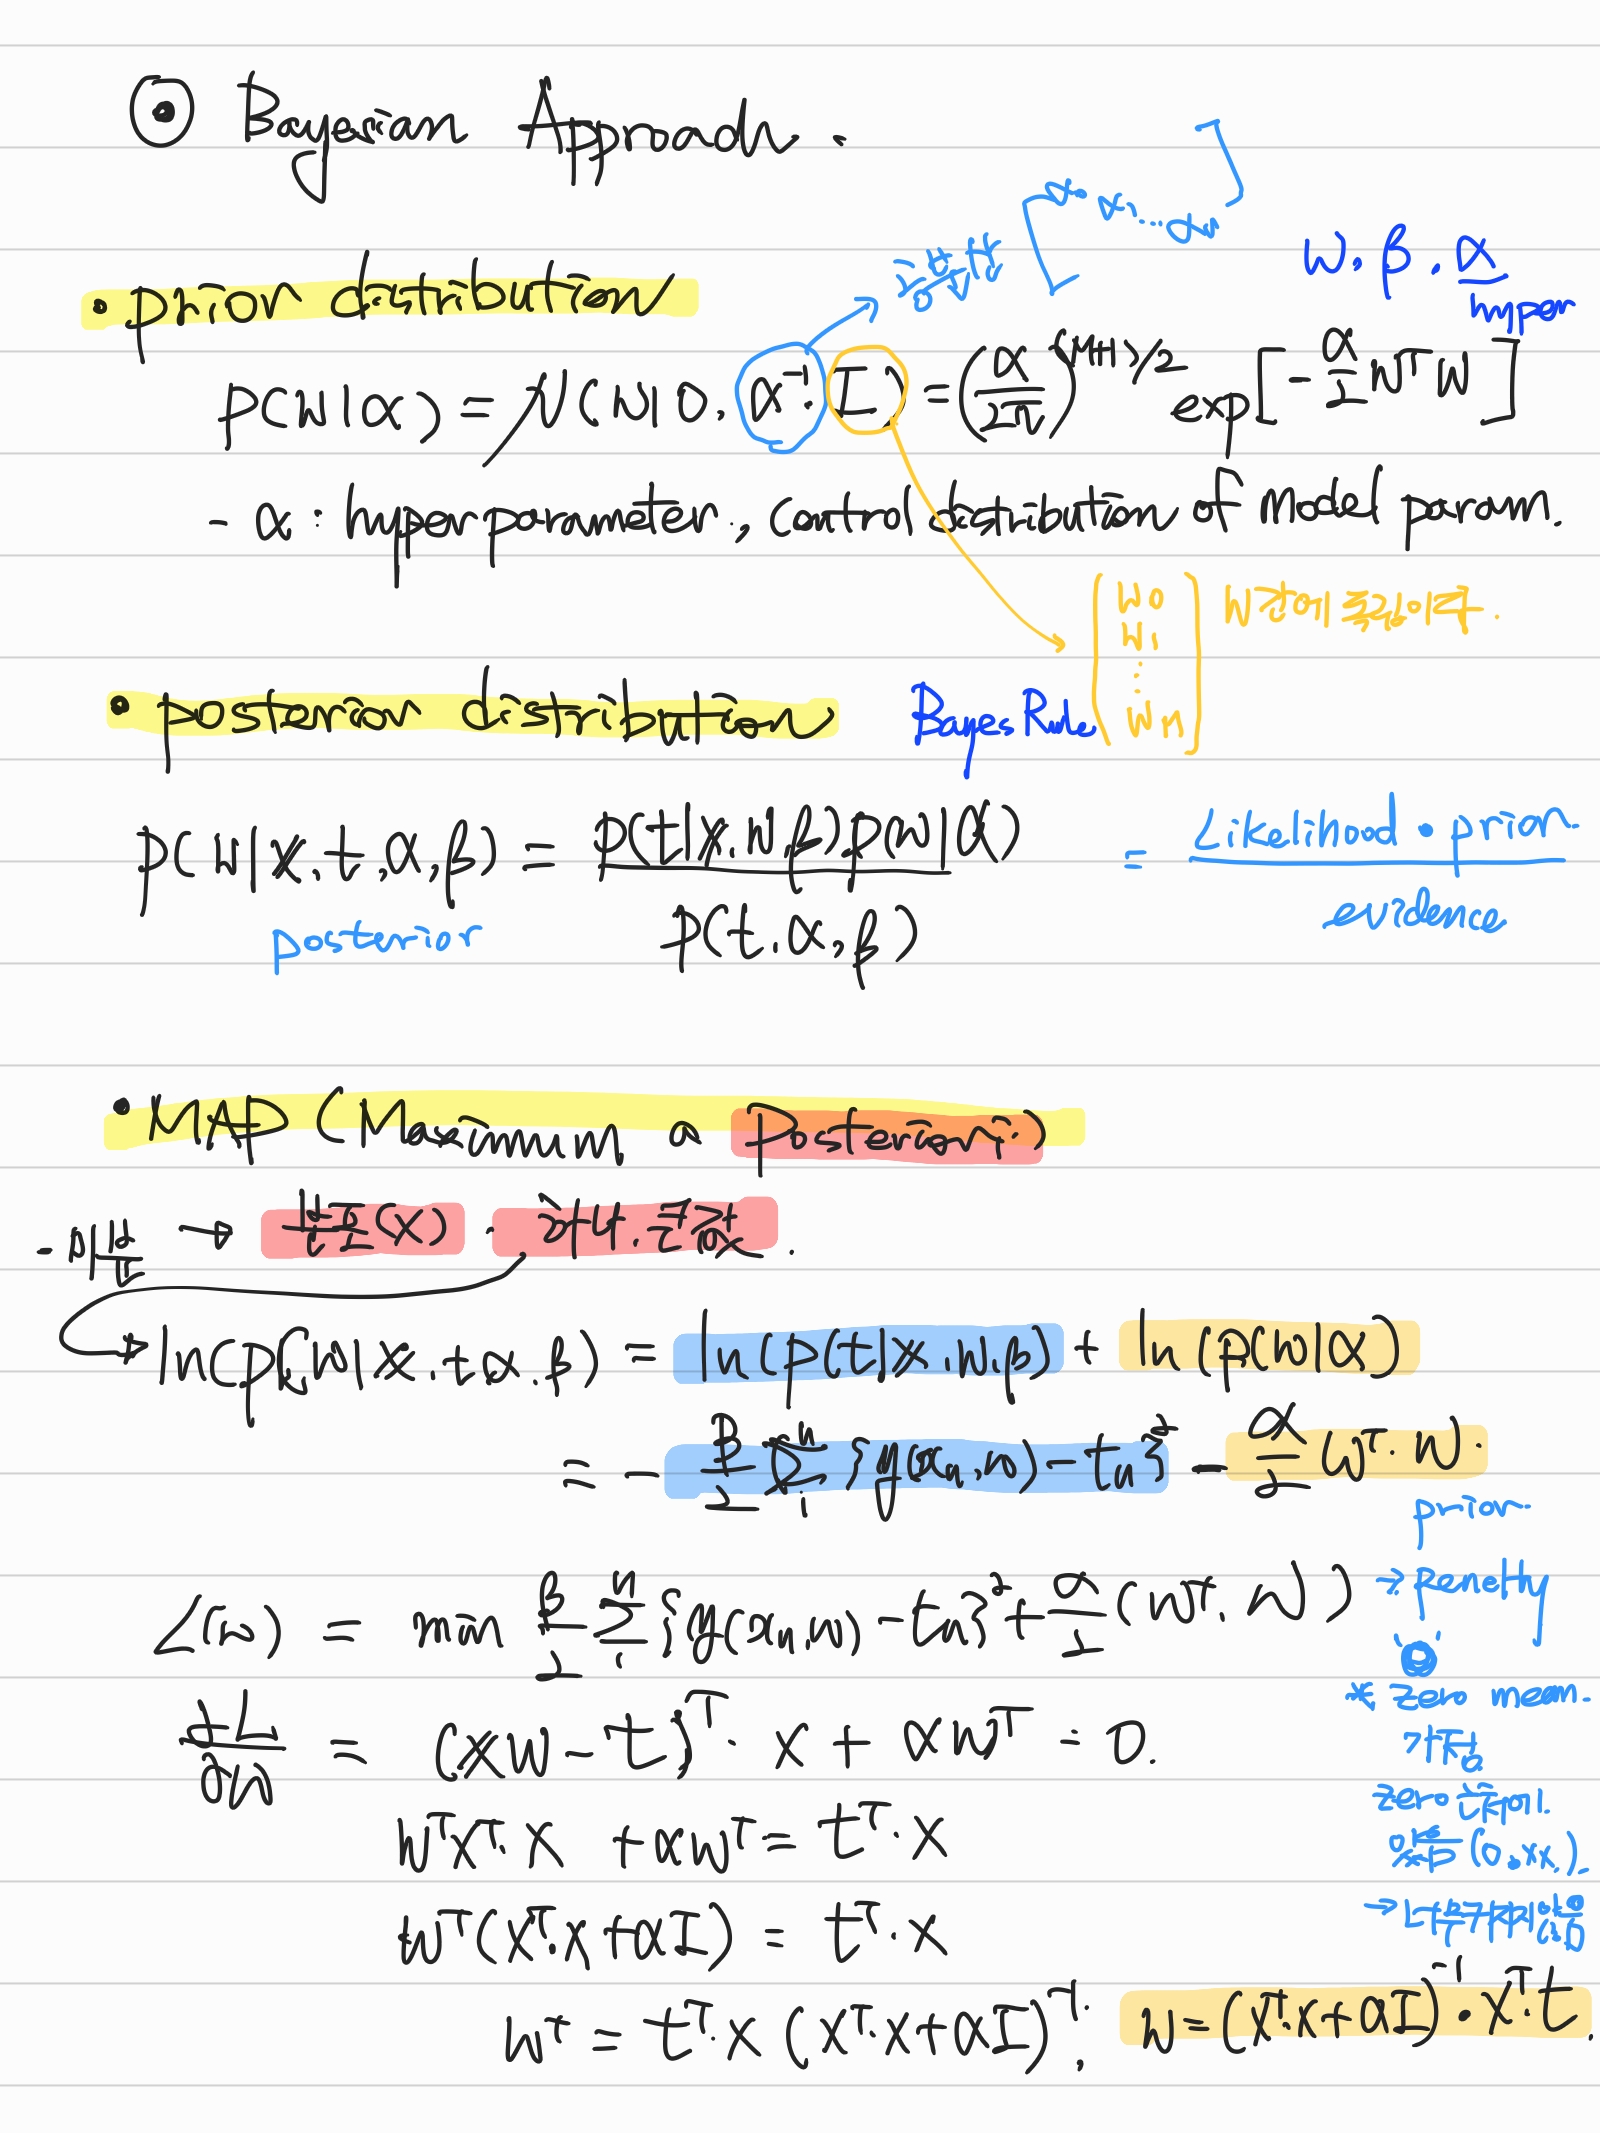 ⊙ Bayesian Approach.
[α₀ α₁ ... αₙ]
공분산
w, β, α
hyper
• prior distribution
p(w|α) = N(w|0, α⁻¹·I) = (α/2π)^((M+1)/2) exp[-α/2 wᵀw]
- α : hyperparameter, control distribution of model param.
[w₀ w₁ ⋮ wₘ] w간에 독립이루.
• posterior distribution
Bayes Rule
p(w|x,t,α,β) = p(t|x,w,β)p(w|α) / p(t,α,β) = Likelihood • prior / evidence
posterior
• MAP (Maximum a posteriori)
- 미분 → 분포(x)
ln(p(w|x,t,α,β) = ln(p(t|x,w,β) + ln(p(w|α)
= - β/2 Σⁿ₁ {y(xₙ,w) - tₙ}² - α/2 wᵀ·w.
prior
→ Penelty
L(w) = min β/2 Σᴺ₁ {y(xₙ,w) - tₙ}² + α/2 (wᵀ·w)
* zero mean.
가능
zero
(0.xx).
∂L/∂w = (xw - t)ᵀ· x + αwᵀ = 0.
wᵀxᵀ·x + αwᵀ = tᵀ·x
wᵀ(xᵀ·x + αI) = tᵀ·x
wᵀ = tᵀ·x (xᵀ·x + αI)⁻¹.
w = (xᵀ·x + αI)⁻¹·xᵀ·t.